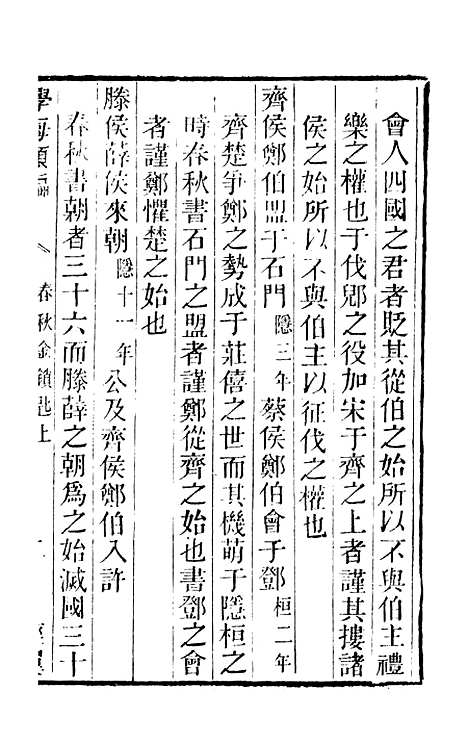 會人四國之君者貶其從伯之始所以不與伯主禮
樂之權也于伐郳之役加宋于齊之上者謹其摟諸
侯之始所以不與伯主以征伐之權也
齊侯鄭伯盟于石門隱三年蔡侯鄭伯會于鄧桓二年
齊楚爭鄭之勢成于莊僖之世而其機萌于隱桓之
時春秋書石門之盟者謹鄭從齊之始也書鄧之會
者謹鄭懼楚之始也
滕侯薛侯來朝隱十一年公及齊侯鄭伯入許
春秋書朝者三十六而滕薛之朝爲之始滅國三十
學海類編
春秋金鎖匙上